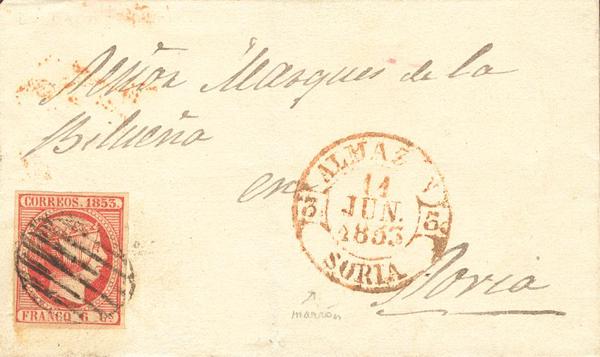 Señor Marques de la
Bilueña
en
Soria
CORREOS. 1853.
FRANCO 6 Cs
ALMAZ
11
JUN.
1853
3 3
SORIA
marrón